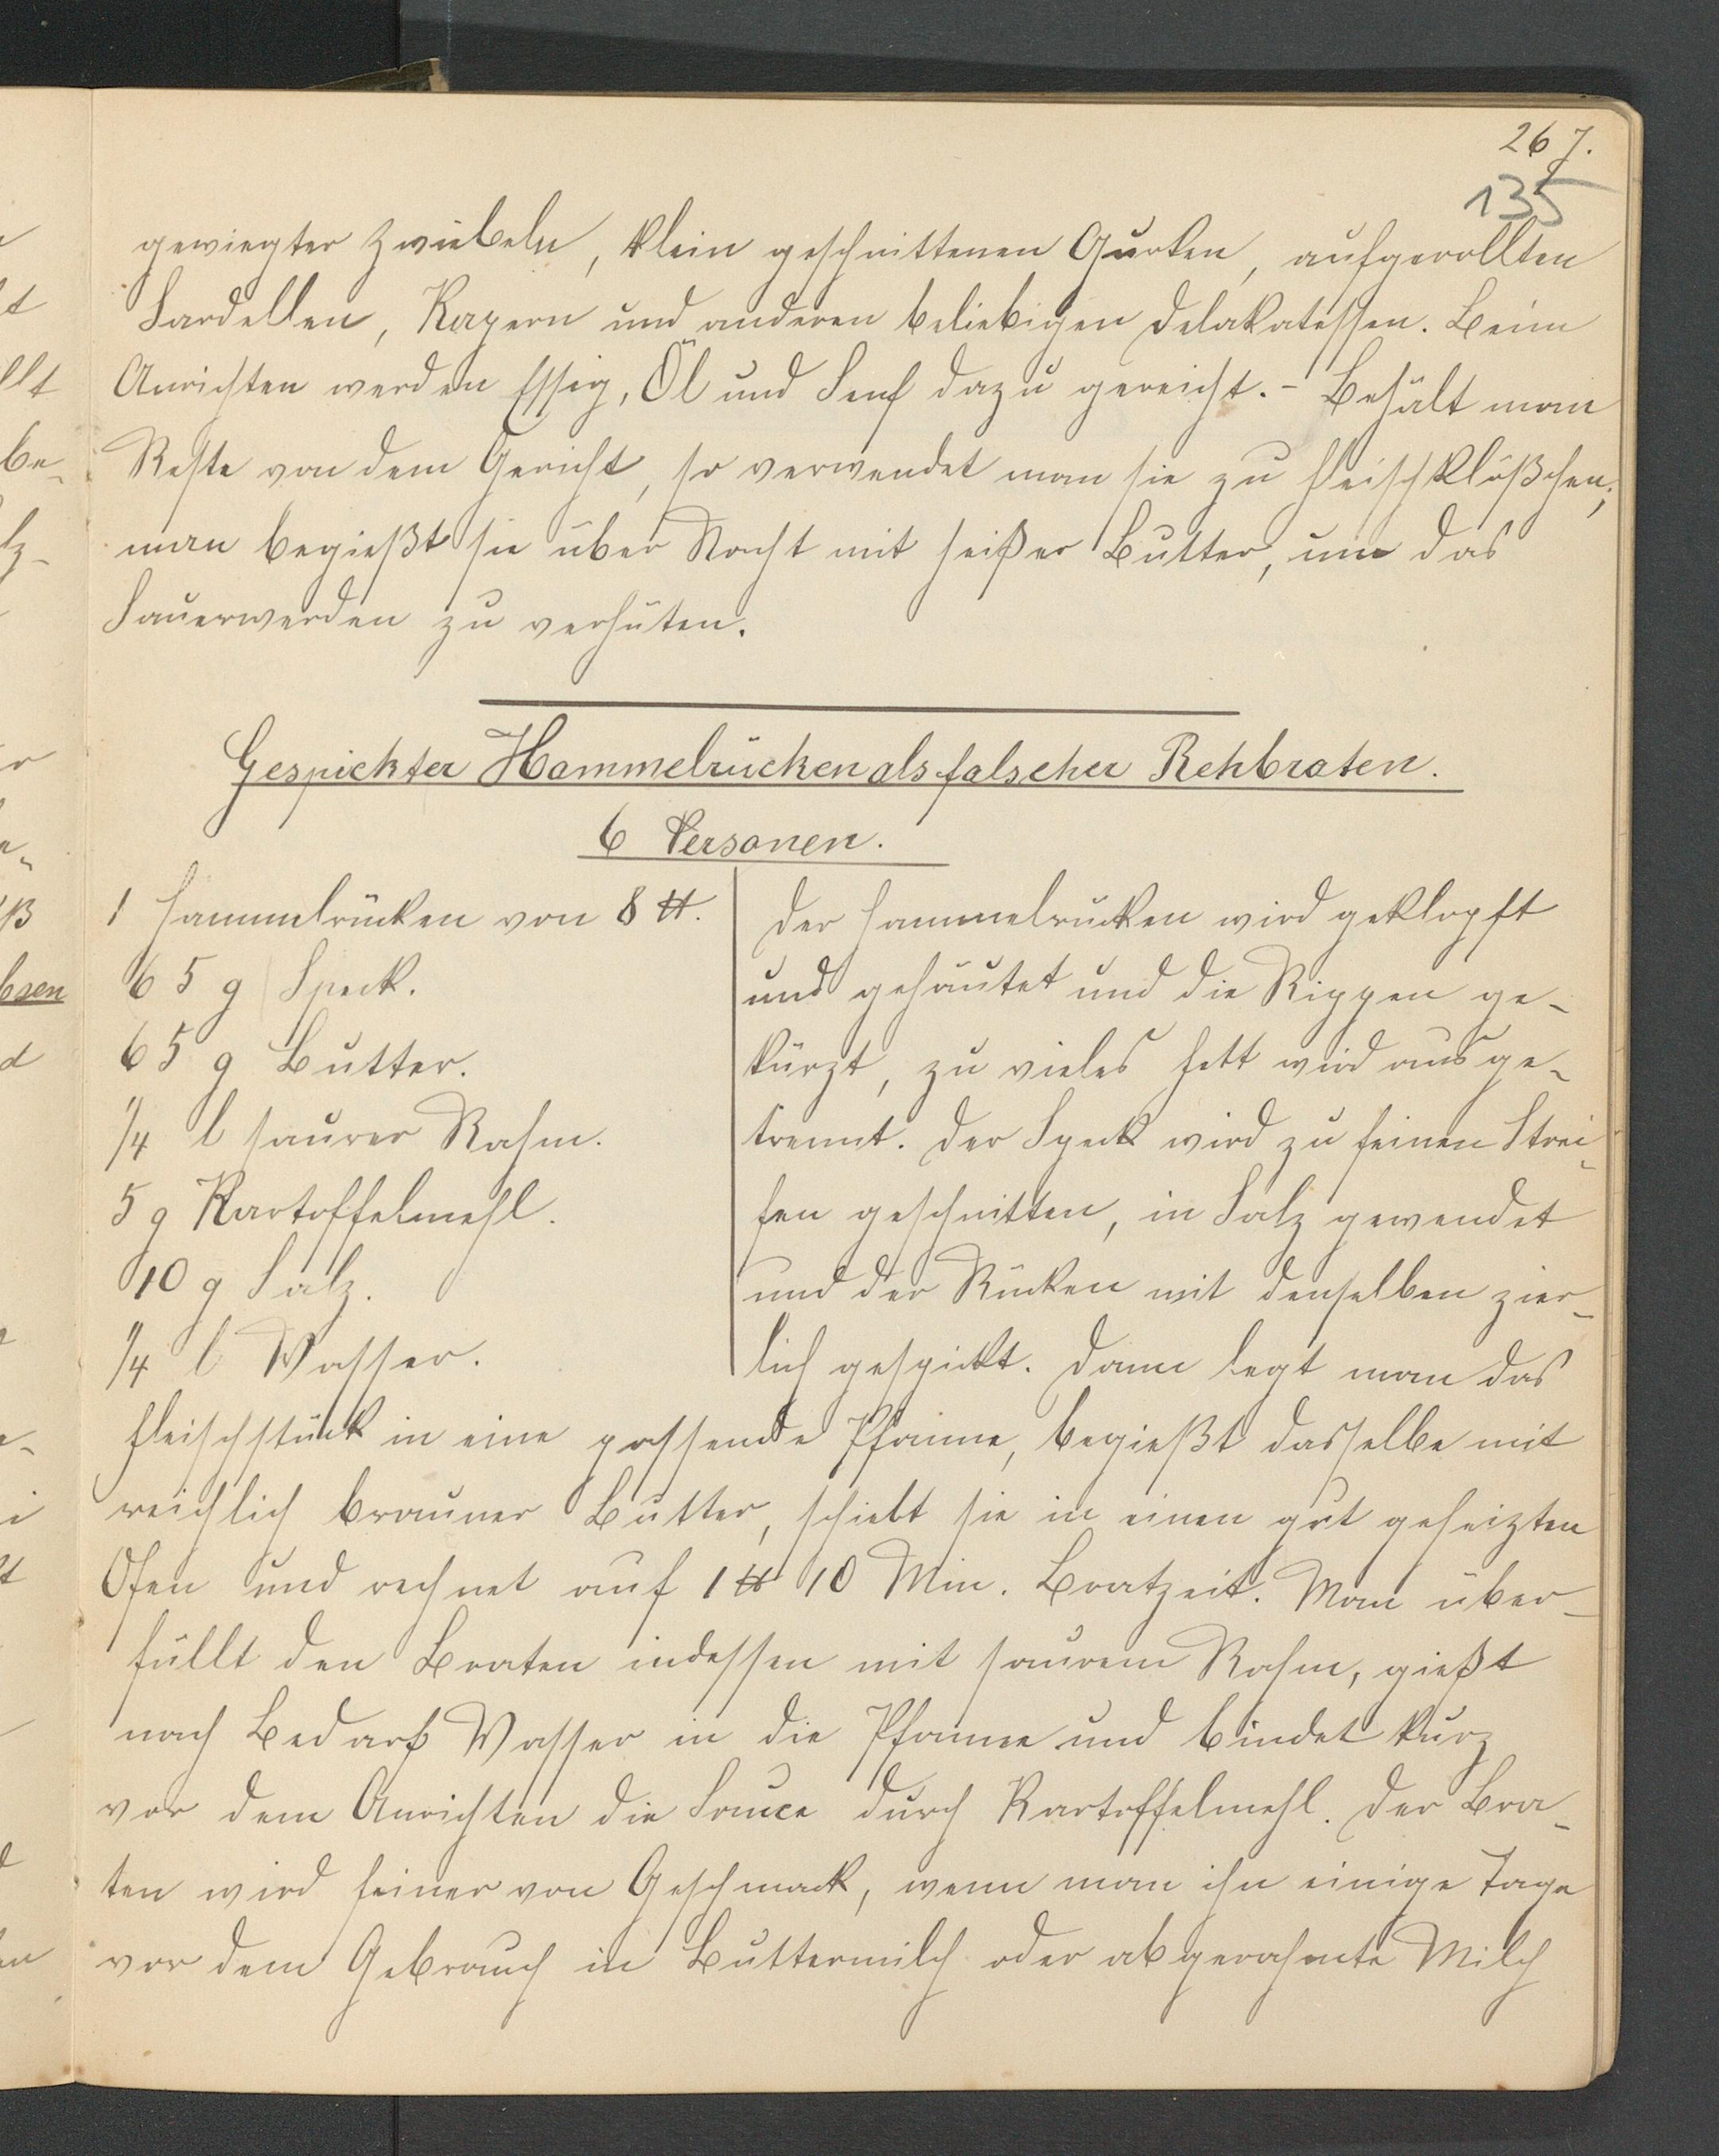 267.
135
gewiegter Zwiebeln, klein geschnittenen Gurken, aufgerollten
Sardellen, Kapern und anderen beliebigen Delakatessen. Beim
Anrichten werden Essig, Öl und Senf dazu gereicht. - Behält man
Reste von dem Gericht, so verwendet man sie zu Fleischklößchen;
man begießt sie über Nacht mit heißer Butter, um das
Sauerwerden zu verhüten.
Gespickter Hammelrücken als falscher Rehbraten.
6 Personen.
1 Hammelrücken von 8 ℔.
65 g Speck.
65 g Butter.
1/4 l saurer Rahm.
5 g Kartoffelmehl.
10 g Salz.
1/4 l Wasser.
Der Hammelrücken wird geklopft
und gehäutet und die Rippen ge-
kürzt, zu vieles Fett wird ausge-
trennt. Der Speck wird zu feinen Strei-
fen geschnitten, in Salz gewendet
und der Rücken mit denselben zier-
lich gespickt. Dann legt man das
Fleischstück in eine passende Pfanne, begießt dasselbe mit
reichlich brauner Butter, schiebt sie in einen gut geheizten
Ofen und rechnet auf 1 ℔ 10 Min. Bratzeit. Man über-
füllt den Braten indessen mit saurem Rahm, gießt
nach Bedarf Wasser in die Pfanne und bindet kurz
vor dem Anrichten die Sauce durch Kartoffelmehl. Der Bra-
ten wird feiner von Geschmack, wenn man ihn einige Tage
vor dem Gebrauch in Buttermilch oder abgerahmte Milch